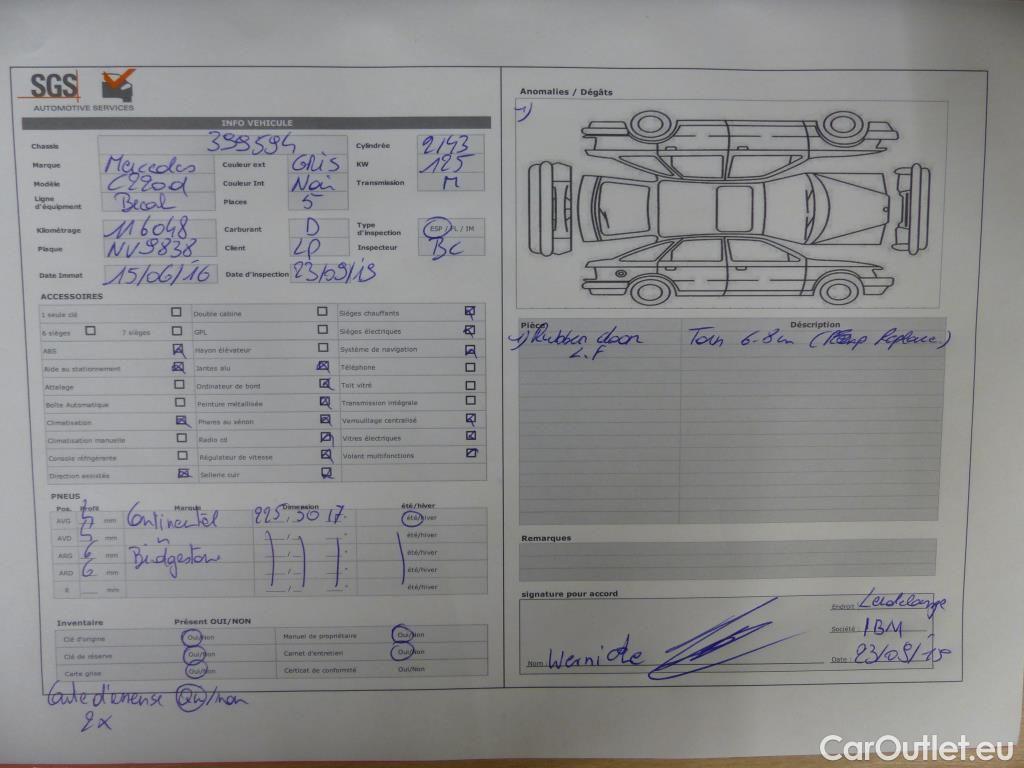 SGS
AUTOMOTIVE SERVICES
INFO VEHICULE
Chassis 399594 Cylindrée 2143
Marque Mercedes Couleur ext GRIS KW 125
Modèle C220d Couleur Int Noir Transmission M
Ligne d'équipement Places 5
Kilométrage 116048 Carburant D Type d'inspection ESP / FL / IM
Plaque NV9838 Client LP Inspecteur BC
Date Immat 15/06/16 Date d'inspection 23/09/19
ACCESSOIRES
1 seule clé Double cabine Sièges chauffants
6 sièges 7 sièges GPL Sièges électriques
ABS Hayon élévateur Système de navigation
Aide au stationnement Jantes alu Téléphone
Attelage Ordinateur de bord Toit vitré
Boîte Automatique Peinture métallisée Transmission intégrale
Climatisation Phares au xénon Verrouillage centralisé
Climatisation manuelle Radio cd Vitres électriques
Console réfrigérante Régulateur de vitesse Volant multifonctions
Direction assistée Sellerie cuir
PNEUS
Pos. Profil Marque Dimension été/hiver
AVG 5 mm Continental 225/50 17 été/hiver
AVD 5 mm " été/hiver
ARG 6 mm Bridgestone été/hiver
ARD 6 mm été/hiver
R mm été/hiver
Inventaire Présent OUI/NON
Clé d'origine Oui/Non Manuel de propriétaire Oui/Non
Clé de réserve Oui/Non Carnet d'entretien Oui/Non
Carte grise Oui/Non Certicat de conformité Oui/Non
Oui/non
2x
Anomalies / Dégâts
1)
Pièce Déscription
1) Rubber door Torn 6-8cm ( Replace.)
L.F
Remarques
signature pour accord
Endroit
Société : IBM
Nom Wernicke Date : 23/09/19
CarOutlet.eu